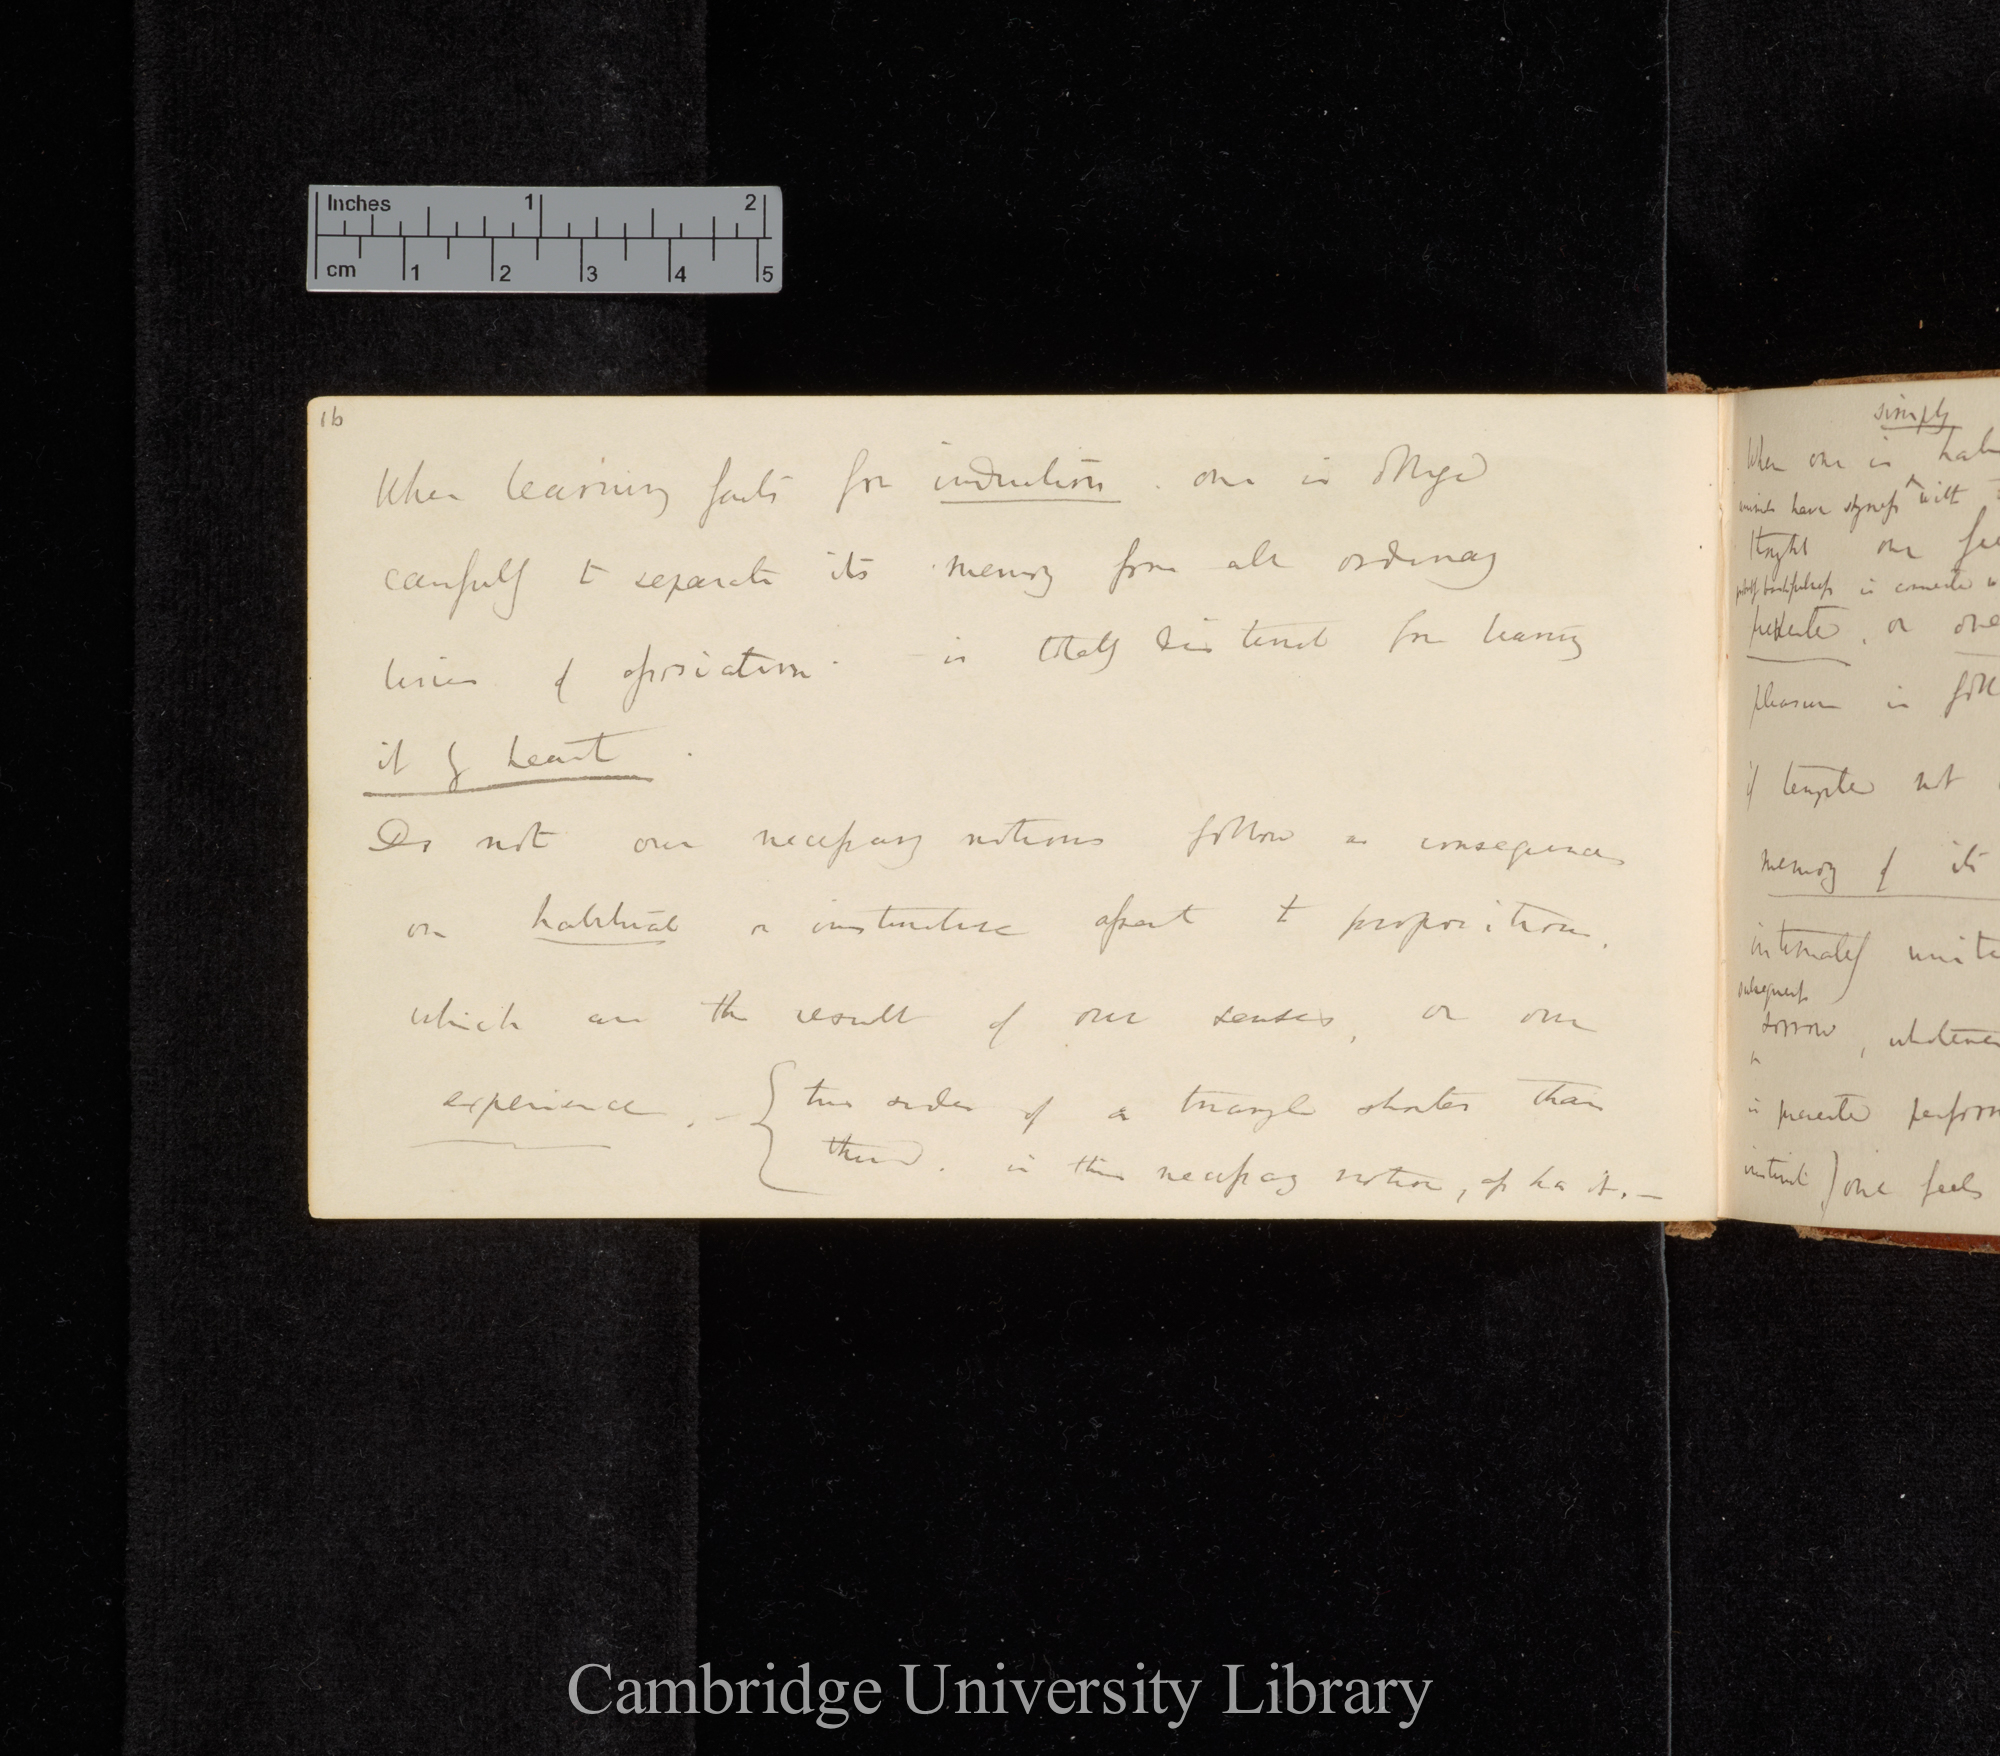 Inches 1 2
cm 1 2 3 4 5
16
When learning facts for induction. one is obliged
carefully to separate its memory from all ordinary
lines of association. — is totally distinct from learning
it by heart.
Do not our necessary notions follow as consequences
on habitual or instinctive assent to propositions,
which are the result of our senses, or our
experience. — {two sides of a triangle shorter than
third. is this necessary notion, ass has it. —
simply
When one is
minds have with
thought one
is connected
or one
pleasure is
if tempted not
memory of its
intimately
subsequent
sorrow, whatever
is prevented
instinct) one feels
Cambridge University Library